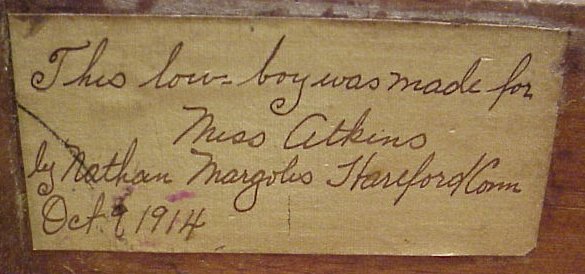 This low-boy was made for
Miss Atkins
by Nathan Margolis Hareford Conn
Oct. 9 1914